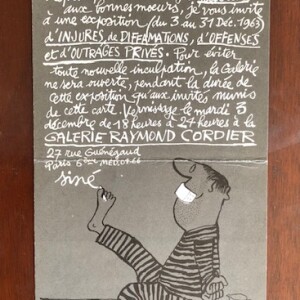 aux bonnes moeurs, je vous invite
à une exposition (du 3 au 31 Déc. 1963)
d'INJURES, de DIFFAMATIONS, d'OFFENSES
et d'OUTRAGES PRIVÉS. Pour éviter
toute nouvelle inculpation, la Galerie
ne sera ouverte, pendant la durée de
cette exposition qu'aux invités munis
de cette carte. Vernissage le mardi 3
décembre de 18 heures à 24 heures à la
GALERIE RAYMOND CORDIER
27 rue Guénégaud
Paris 6ème métro
siné